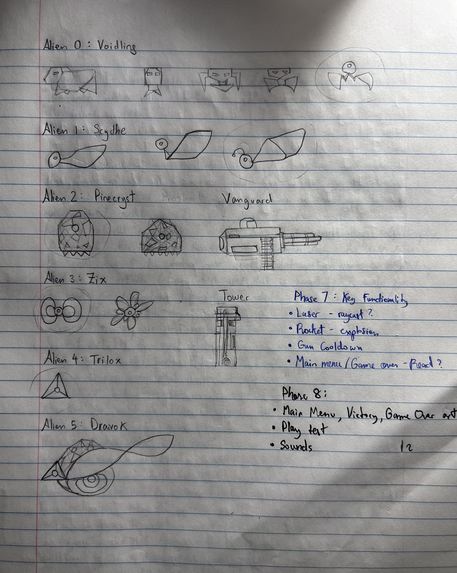 Alien 0 : Voidling
Alien 1 : Scythe
Alien 2 : Pinecryst
Vanguard
Alien 3 : Zix
Tower
Phase 7 : Key Functionality
• Laser - raycast ?
• Rocket - explosion
• Gun Cooldown
• Main menu / Game over - Read ?
Alien 4 : Trilox
Phase 8 :
• Main Menu, Victory, Game Over art
• Play test
• Sounds
12
Alien 5 : Dravok